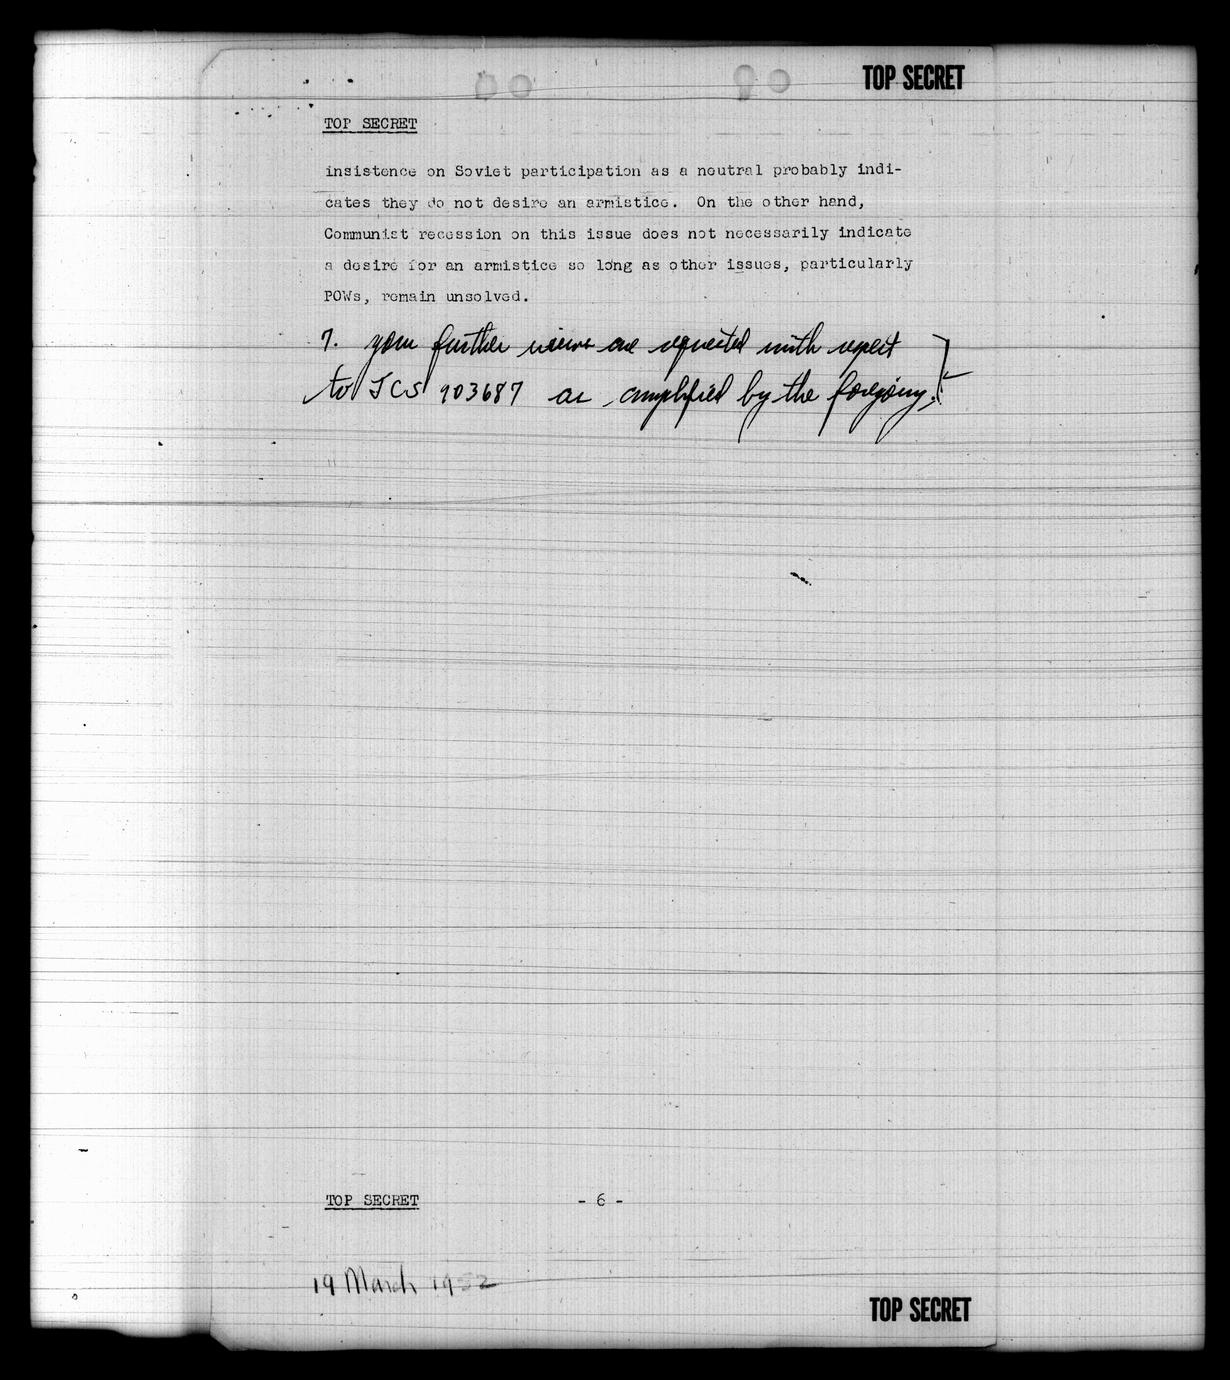 TOP SECRET
TOP SECRET
insistence on Soviet participation as a neutral probably indi-
cates they do not desire an armistice. On the other hand,
Communist recession on this issue does not necessarily indicate
a desire for an armistice so long as other issues, particularly
POWs, remain unsolved.
7. your further views are requested with respect
to JCS 903687 as amplified by the foregoing.
TOP SECRET - 6 -
19 March 1952
TOP SECRET